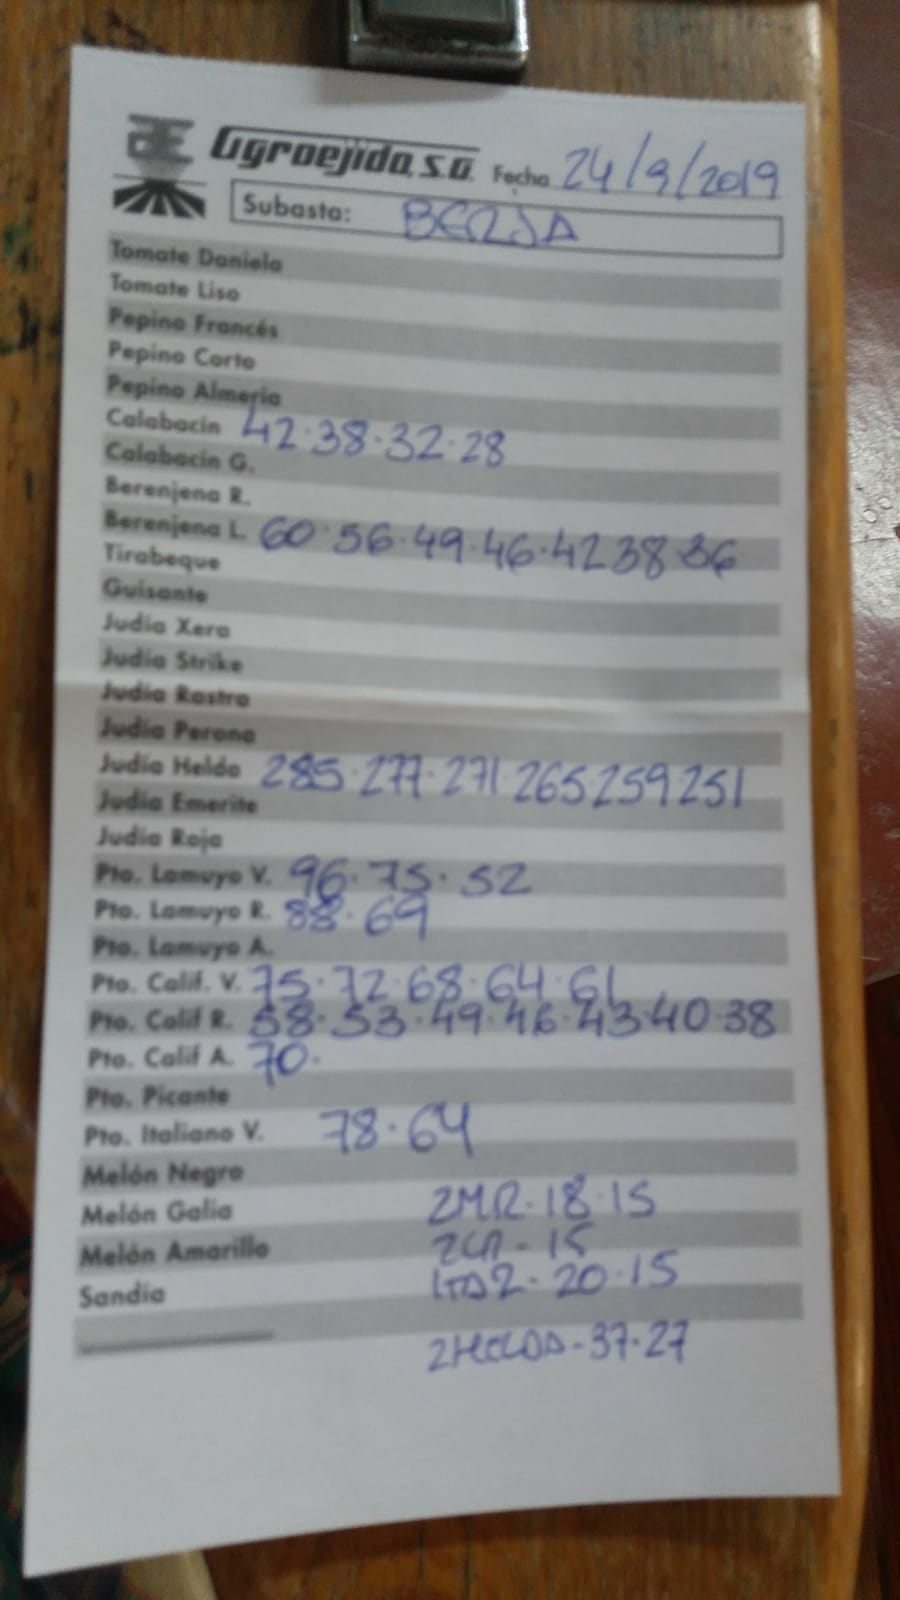 Agroejido, S.A. Fecha 24/9/2019
Subasta: BERJA
Tomate Daniela
Tomate Liso
Pepino Francés
Pepino Corto
Pepino Almería
Calabacín 42·38·32·28
Calabacín G.
Berenjena R.
Berenjena L. 60·56·49·46·42 38·36
Tirabeque
Guisante
Judía Xera
Judía Strike
Judía Rastra
Judía Perona
Judía Helda 285·277·271·265 259 251
Judía Emerite
Judía Roja
Pto. Lamuyo V. 96·75·52
Pto. Lamuyo R. 88·69
Pto. Lamuyo A.
Pto. Calif. V. 75·72·68·64·61
Pto. Calif R. 58·53·49·46·43·40·38
Pto. Calif A. 70·
Pto. Picante
Pto. Italiano V. 78·64
Melón Negro
Melón Galia 2MR-18·15
Melón Amarillo - 15
Sandía 2-20·15
2HELDA-37·27